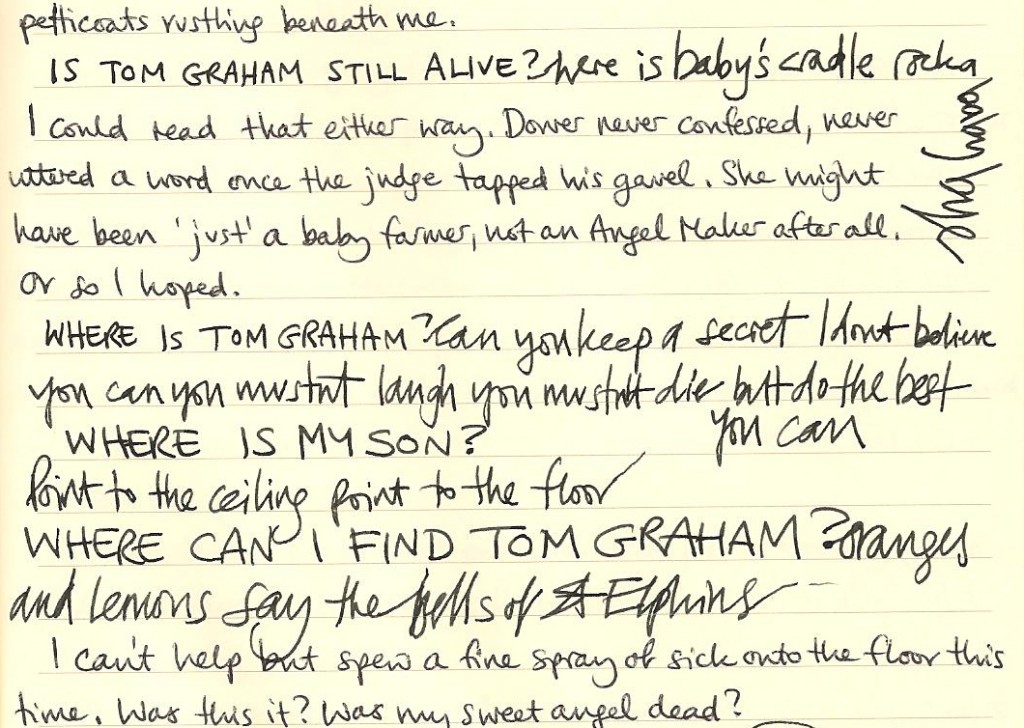 petticoats rustling beneath me.
IS TOM GRAHAM STILL ALIVE? here is baby's cradle rocka
baby bye
I could read that either way. Dower never confessed, never
uttered a word once the judge tapped his gavel. She might
have been 'just' a baby farmer, not an Angel Maker after all.
Or so I hoped.
WHERE IS TOM GRAHAM? Can you keep a secret I dont believe
you can you mustnt laugh you mustnt die butt do the best
you can
WHERE IS MY SON?
Point to the ceiling point to the floor
WHERE CAN I FIND TOM GRAHAM? oranges
and lemons say the bells of St Elphins
I can't help but spew a fine spray of sick onto the floor this
time. Was this it? Was my sweet angel dead?